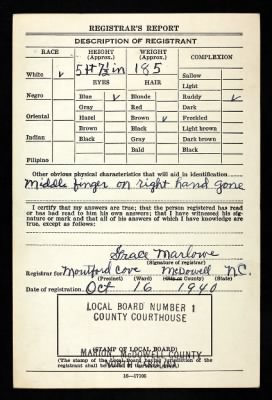 REGISTRAR'S REPORT
DESCRIPTION OF REGISTRANT
RACE HEIGHT (Approx.) WEIGHT (Approx.) COMPLEXION
5 ft 7½ in 185 Sallow
White ✓ EYES HAIR Light
Negro Blue ✓ Blonde Ruddy ✓
Gray Red Dark
Oriental Hazel Brown ✓ Freckled
Brown Black Light brown
Indian Black Gray Dark brown
Bald Black
Filipino
Other obvious physical characteristics that will aid in identification
Middle finger on right hand gone
I certify that my answers are true; that the person registered has read
or has had read to him his own answers; that I have witnessed his sig-
nature or mark and that all of his answers of which I have knowledge
are true, except as follows:
Grace Marlowe
(Signature of registrar)
Registrar for Montford Cove McDowell N.C.
(Precinct) (Ward) (City or County) (State)
Date of registration Oct 16 1940
LOCAL BOARD NUMBER 1
COUNTY COURTHOUSE
(STAMP OF LOCAL BOARD)
MARION, McDOWELL COUNTY
(The stamp of the Local Board having jurisdiction of the
NORTH CAROLINA
registrant shall be
16—17105